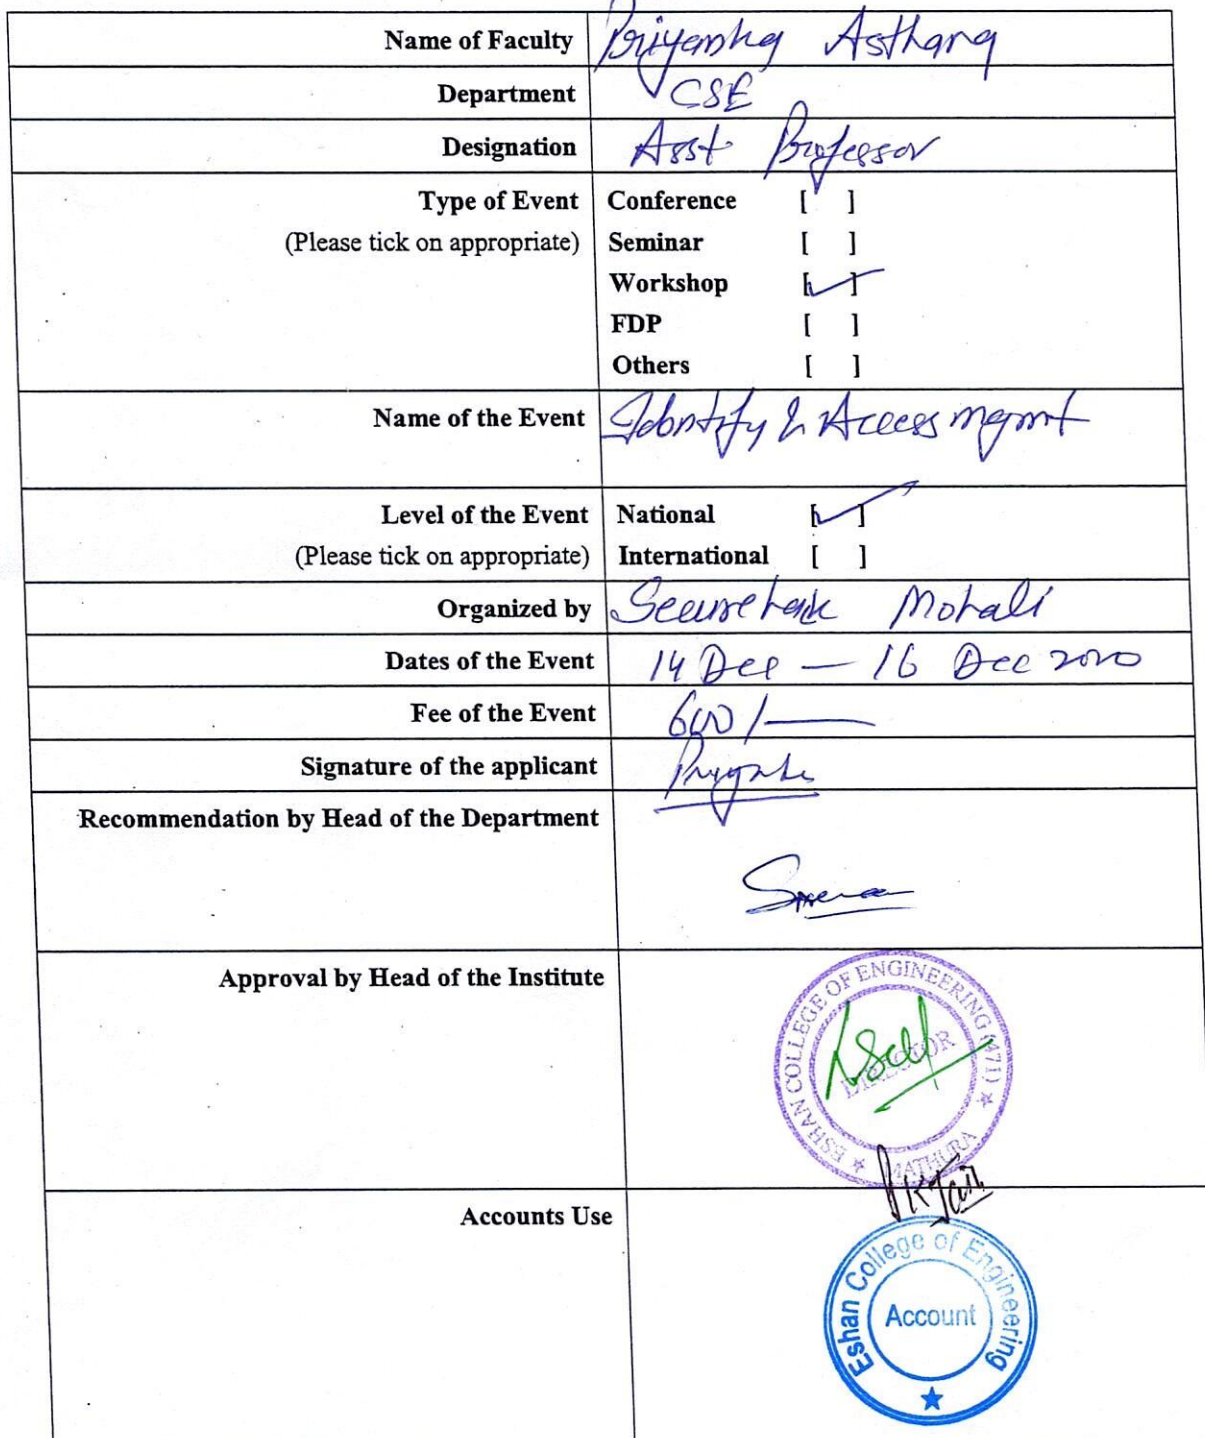 Name of Faculty Priyanka Asthana
Department CSE
Designation Asst Professor
Type of Event Conference [ ]
(Please tick on appropriate) Seminar [ ]
Workshop [✓]
FDP [ ]
Others [ ]
Name of the Event Identify & Access mgmt
Level of the Event National [✓]
(Please tick on appropriate) International [ ]
Organized by Mohali
Dates of the Event 14 Dec — 16 Dec 2020
Fee of the Event 600/—
Signature of the applicant
Recommendation by Head of the Department
Approval by Head of the Institute
ESHAN COLLEGE OF ENGINEERING (471) ★ MATHURA ★
DIRECTOR
Accounts Use
PK Jain
Eshan College of Engineering
Account
★